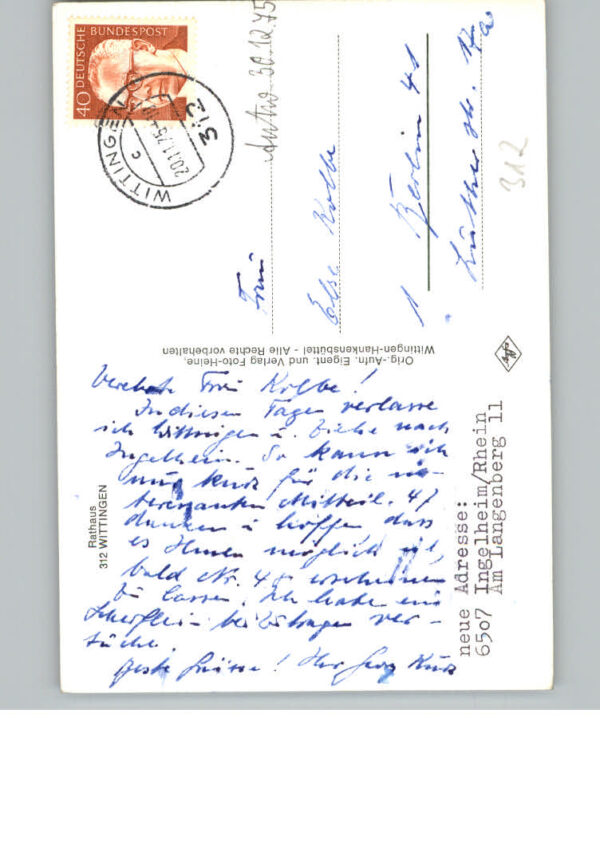 DEUTSCHE BUNDESPOST
40
WITTINGEN
20.11.75
312
c
Antw 30.12.75
Frau
Else Kolbe
1 Berlin 41
Luther str.
312
Orig.-Aufn. Eigent. und Verlag Foto-Heine,
Wittingen-Hankensbüttel - Alle Rechte vorbehalten
Agfa
Rathaus
312 WITTINGEN
Verehrte Frau Kolbe!
In diesen Tagen verlasse
ich Wittingen u. ziehe nach
Ingelheim. So kann ich
nur kurz für die in-
teressanten Mitteil. 47
danken u. hoffen, dass
es Ihnen möglich ist,
bald Nr. 48 erscheinen
zu lassen. Ich habe ein
Scherflein beizutragen ver-
sucht.
Beste Grüsse! Ihr Georg Kurz
neue Adresse:
6507 Ingelheim/Rhein
Am Langenberg 11